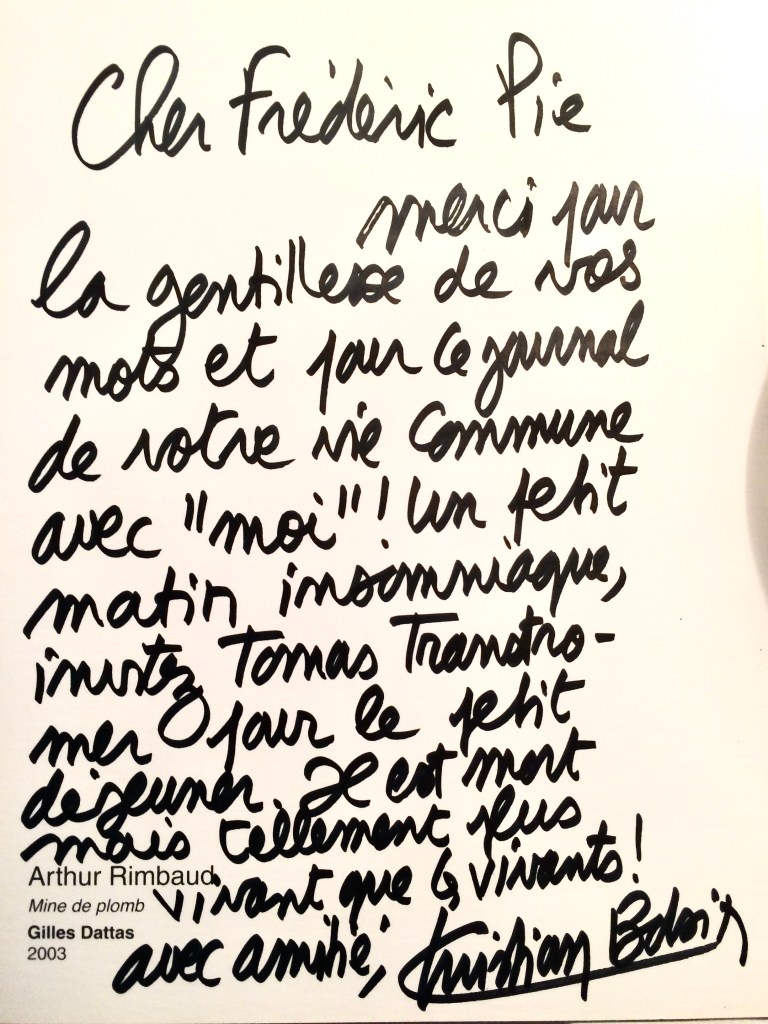 Cher Frédéric Pie
merci pour
la gentillesse de vos
mots et pour ce journal
de votre vie commune
avec "moi" ! Un petit
matin insomniaque,
invitez Tomas Transtro-
mer pour le petit
déjeuner. Il est mort
mais tellement plus
Arthur Rimbaud
vivant que les vivants !
Mine de plomb
Gilles Dattas
2003
avec amitié,